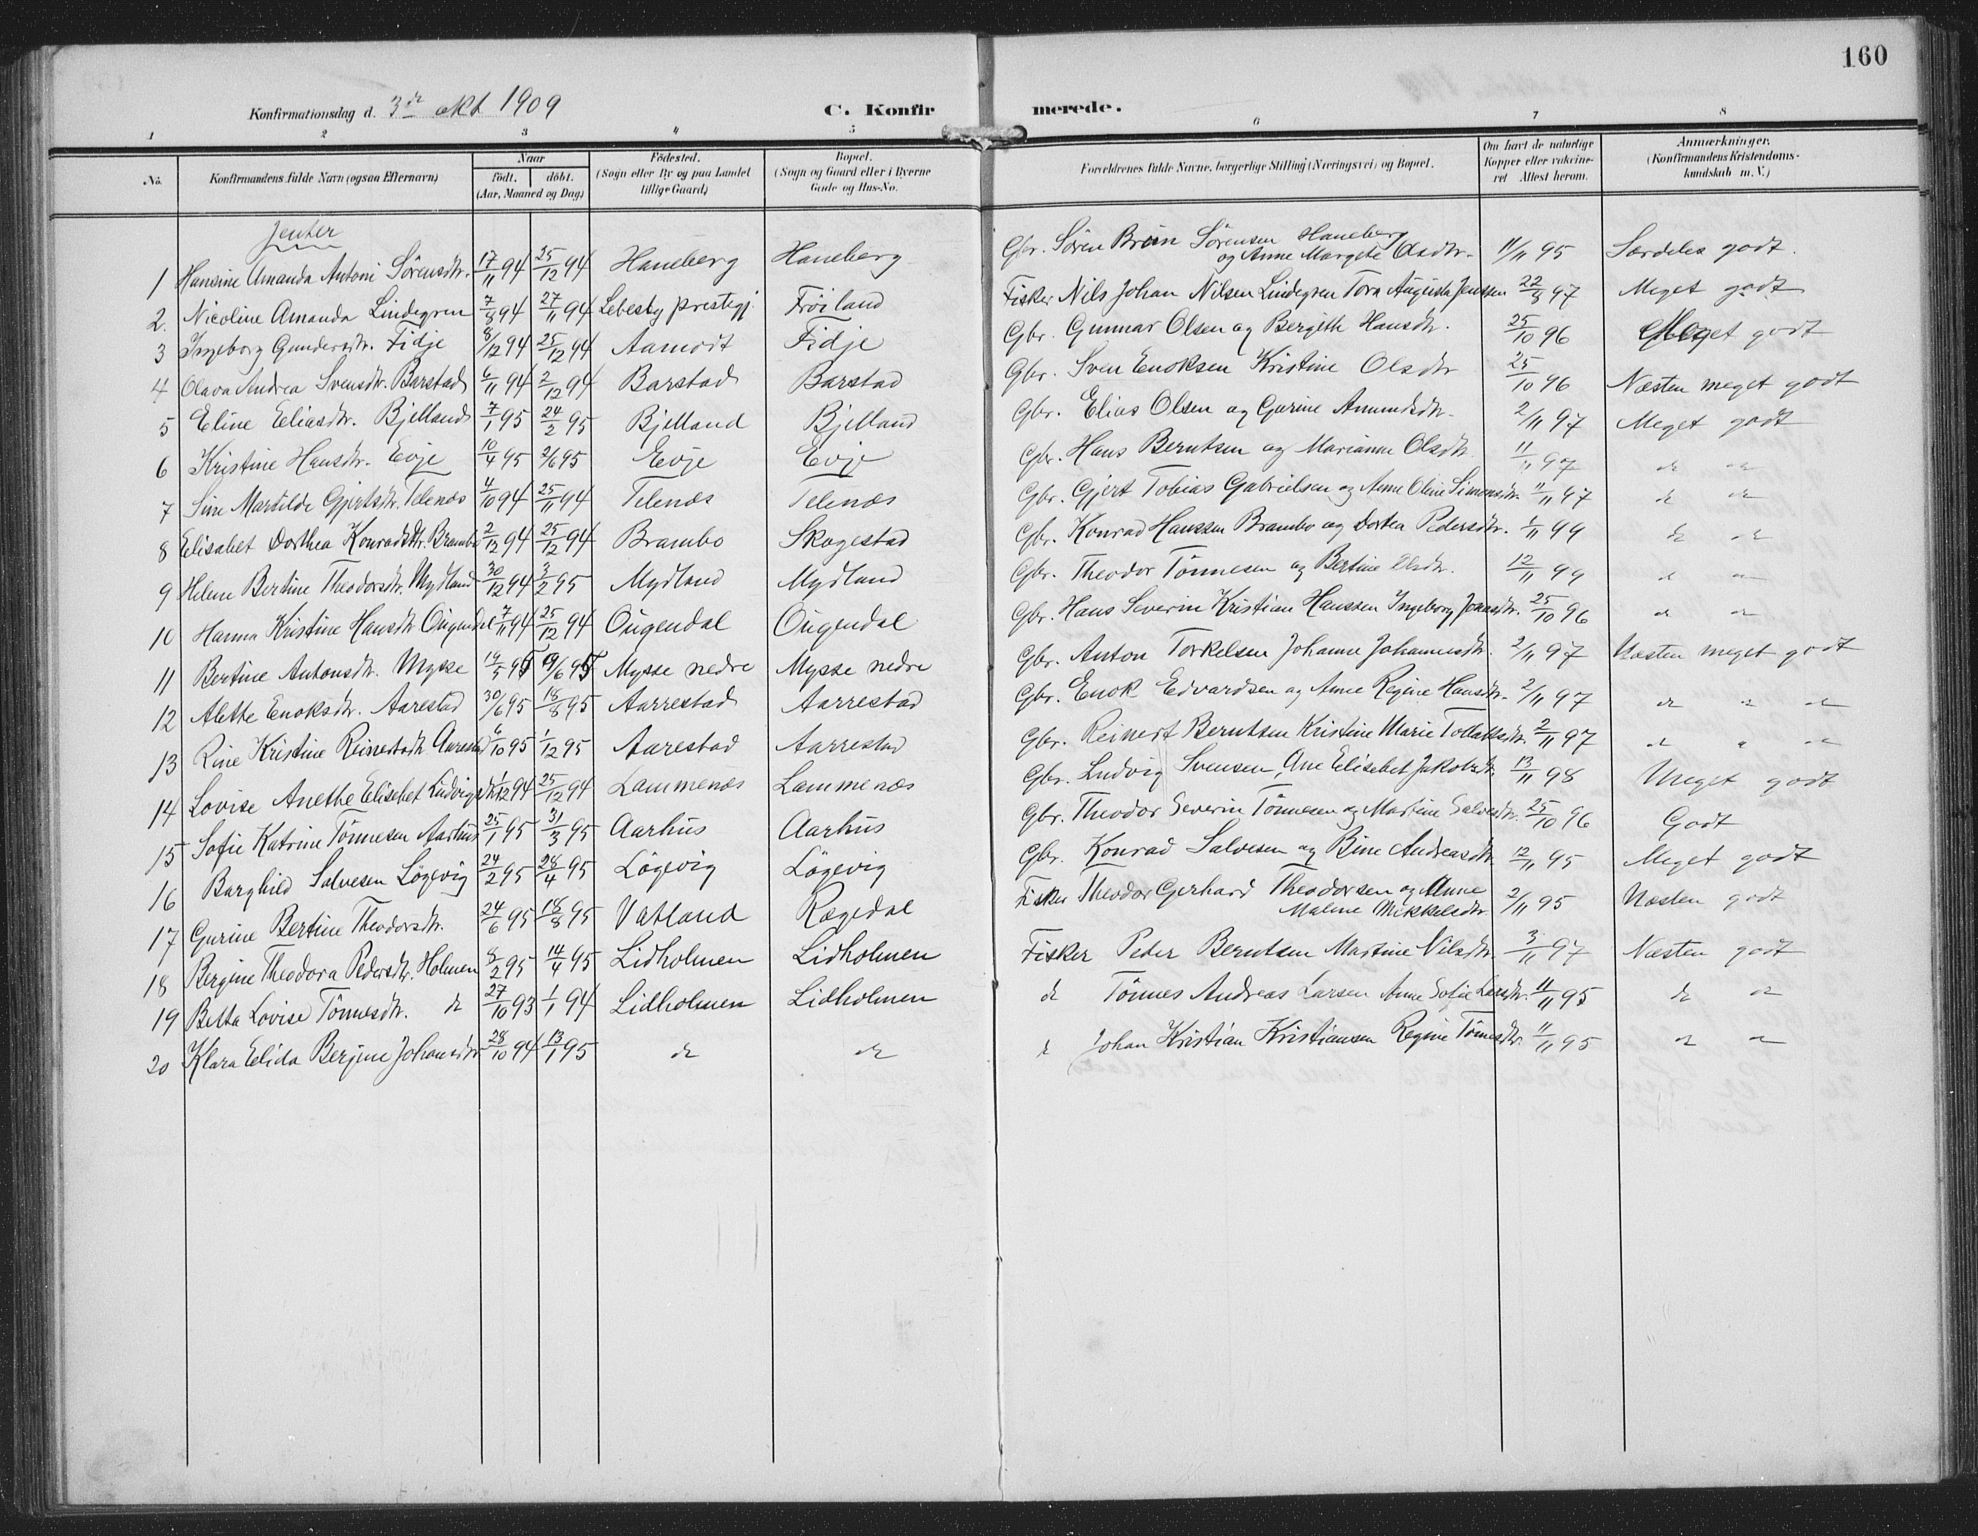 160
Konfirmationsdag d. 3de okt 1909 C. Konfirmerede.
1 2 3 4 5 6 7 8
No. Konfirmandens fulde Navn (ogsaa Efternavn) Naar født. døbt. (Aar, Maaned og Dag) Fødested. (Sogn eller By og paa Landet tillige Gaard) Bopæl. (Sogn og Gaard eller i Byerne Gade og Hus-No. Forældrenes fulde Navne, borgerlige Stilling (Næringsvei) og Bopæl. Om havt de naturlige Kopper eller vakcineret Attest herom. Anmærkninger. (Konfirmandens Kristendomskundskab m. V.)
Jenter
1 Hansine Amanda Antoni Sørensdtr. 17/11 94 25/12 94 Haneberg Haneberg Gbr. Søren Bruun Sørensen Haneberg og Anne Margete Olsdtr. 11/11 95 Særdeles godt.
2. Nicoline Amanda Lindegren 7/8 94 27/11 94 Lebesby prestegj. Frøiland Fisker Nils Johan Nilsen Lindegren Tora Augusta Jenssen 22/8 97 Meget godt
3 Ingeborg Gundersdtr. Fidje 8/12 94 25/12 94 Aamodt Fidje Gbr. Gunnar Olsen og Bergithe Hansdtr. 25/10 96 Meget godt
4 Olava Andrea Svensdtr. Barstad 6/11 94 2/12 94 Barstad Barstad Gbr. Sven Enoksen Kristine Olsdtr 25/10 96 Næsten meget godt
5 Eline Eeliasdtr. Bjelland 7/1 95 24/2 95 Bjelland Bjelland Gbr. Elias Olsen og Gurine Amundsdtr. 2/11 97 Meget godt
6 Kristine Hansdtr. Eeje 10/4 95 2/6 95 Eeje Eeje Gbr. Hans Berntsen og Marianne Olsdtr. 11/11 97 do do
7 Sine Martilde Gjertsdtr. Telenæs 4/10 94 25/11 94 Telenæs Telenæs Gbr. Gjert Tobias Gabrielsen og Anne Oline Simonsdtr. 11/11 97 do do
8 Elisabet Dorthea Konradsdtr. Brambo 2/12 94 25/12 94 Brambo Skogestad Gbr. Konrad Hanssen Brambo og Dortea Pedersdtr. 1/11 99 do do
9 Helene Bertine Theodorsdtr. Mydland 30/12 94 3/2 95 Mydland Mydland Gbr. Theodor Tønnesen og Bertine Olsdtr. 12/11 99 do do
10 Hanna Kristine Hansdtr Ougendal 7/11 94 25/12 94 Ougendal Ougendal Gbr. Hans Severin Kristian Hanssen Ingeborg Jonasdtr. 25/10 96 do do
11 Bertine Antonsdtr. Mysse 19/5 95 9/6 95 Mysse nedre Mysse nedre Gbr. Anton Torkelsen Johanne Johannesdtr. 2/11 97 Næsten meget godt
12 Alette Enoksdtr. Aarestad 30/6 95 18/8 95 Aarrestad Aarrestad Gbr. Enok Edvardsen og Anne Regine Hansdtr. 2/11 97 do do do
13 Rine Kristine Reinertsdtr Aarestad 6/10 95 1/12 95 Aarestad Aarrestad Gbr. Reinert Berntsen Kristine Marie Tollaksdtr. 2/11 97 do do do
14 Lovise Anethe Elisebet Ludvigsdtr 1/12 94 25/12 94 Lammenæs Lammenæs Gbr. Ludvig Svensen, Ane Elisebet Jakobsdtr. 13/11 98 Meget godt
15 Sofie Katrine Tønnesen Aarhus 25/1 95 31/3 95 Aarhus Aarhus Gbr. Theodor Severin Tønnesen og Martine Salvesdtr. 25/10 96 Godt
16 Barghild Salvesen Løgevig 24/2 95 28/4 95 Løgevig Løgevig Gbr. Konrad Salvesen og Bine Andreasdtr. 12/11 95 Meget godt
17 Gurine Bertine Theodorsdtr. 24/6 95 18/8 95 Vatland Rægedal Fisker Theodor Gerhard Theodorsen og Anne Maline Mikkelsdtr. 2/11 95 Næsten godt
18 Bergine Theodora Pedersdtr. Holmen 8/2 95 14/4 95 Lidholmen Lidholmen Fisker Peder Berntsen Martine Nilsdtr. 3/11 97 Næsten godt
19 Betta Lovise Tønnesdtr. do 27/10 93 1/1 94 Lidholmen Lidholmen do Tønnes Andreas Larsen Anne Sofie Larsdtr. 11/11 95 do do
20 Klara Eelida Berjine Johansdtr 28/10 94 13/1 95 do do do Johan Kristian Kristiansen Regine Tønnesdtr. 11/11 95 do do